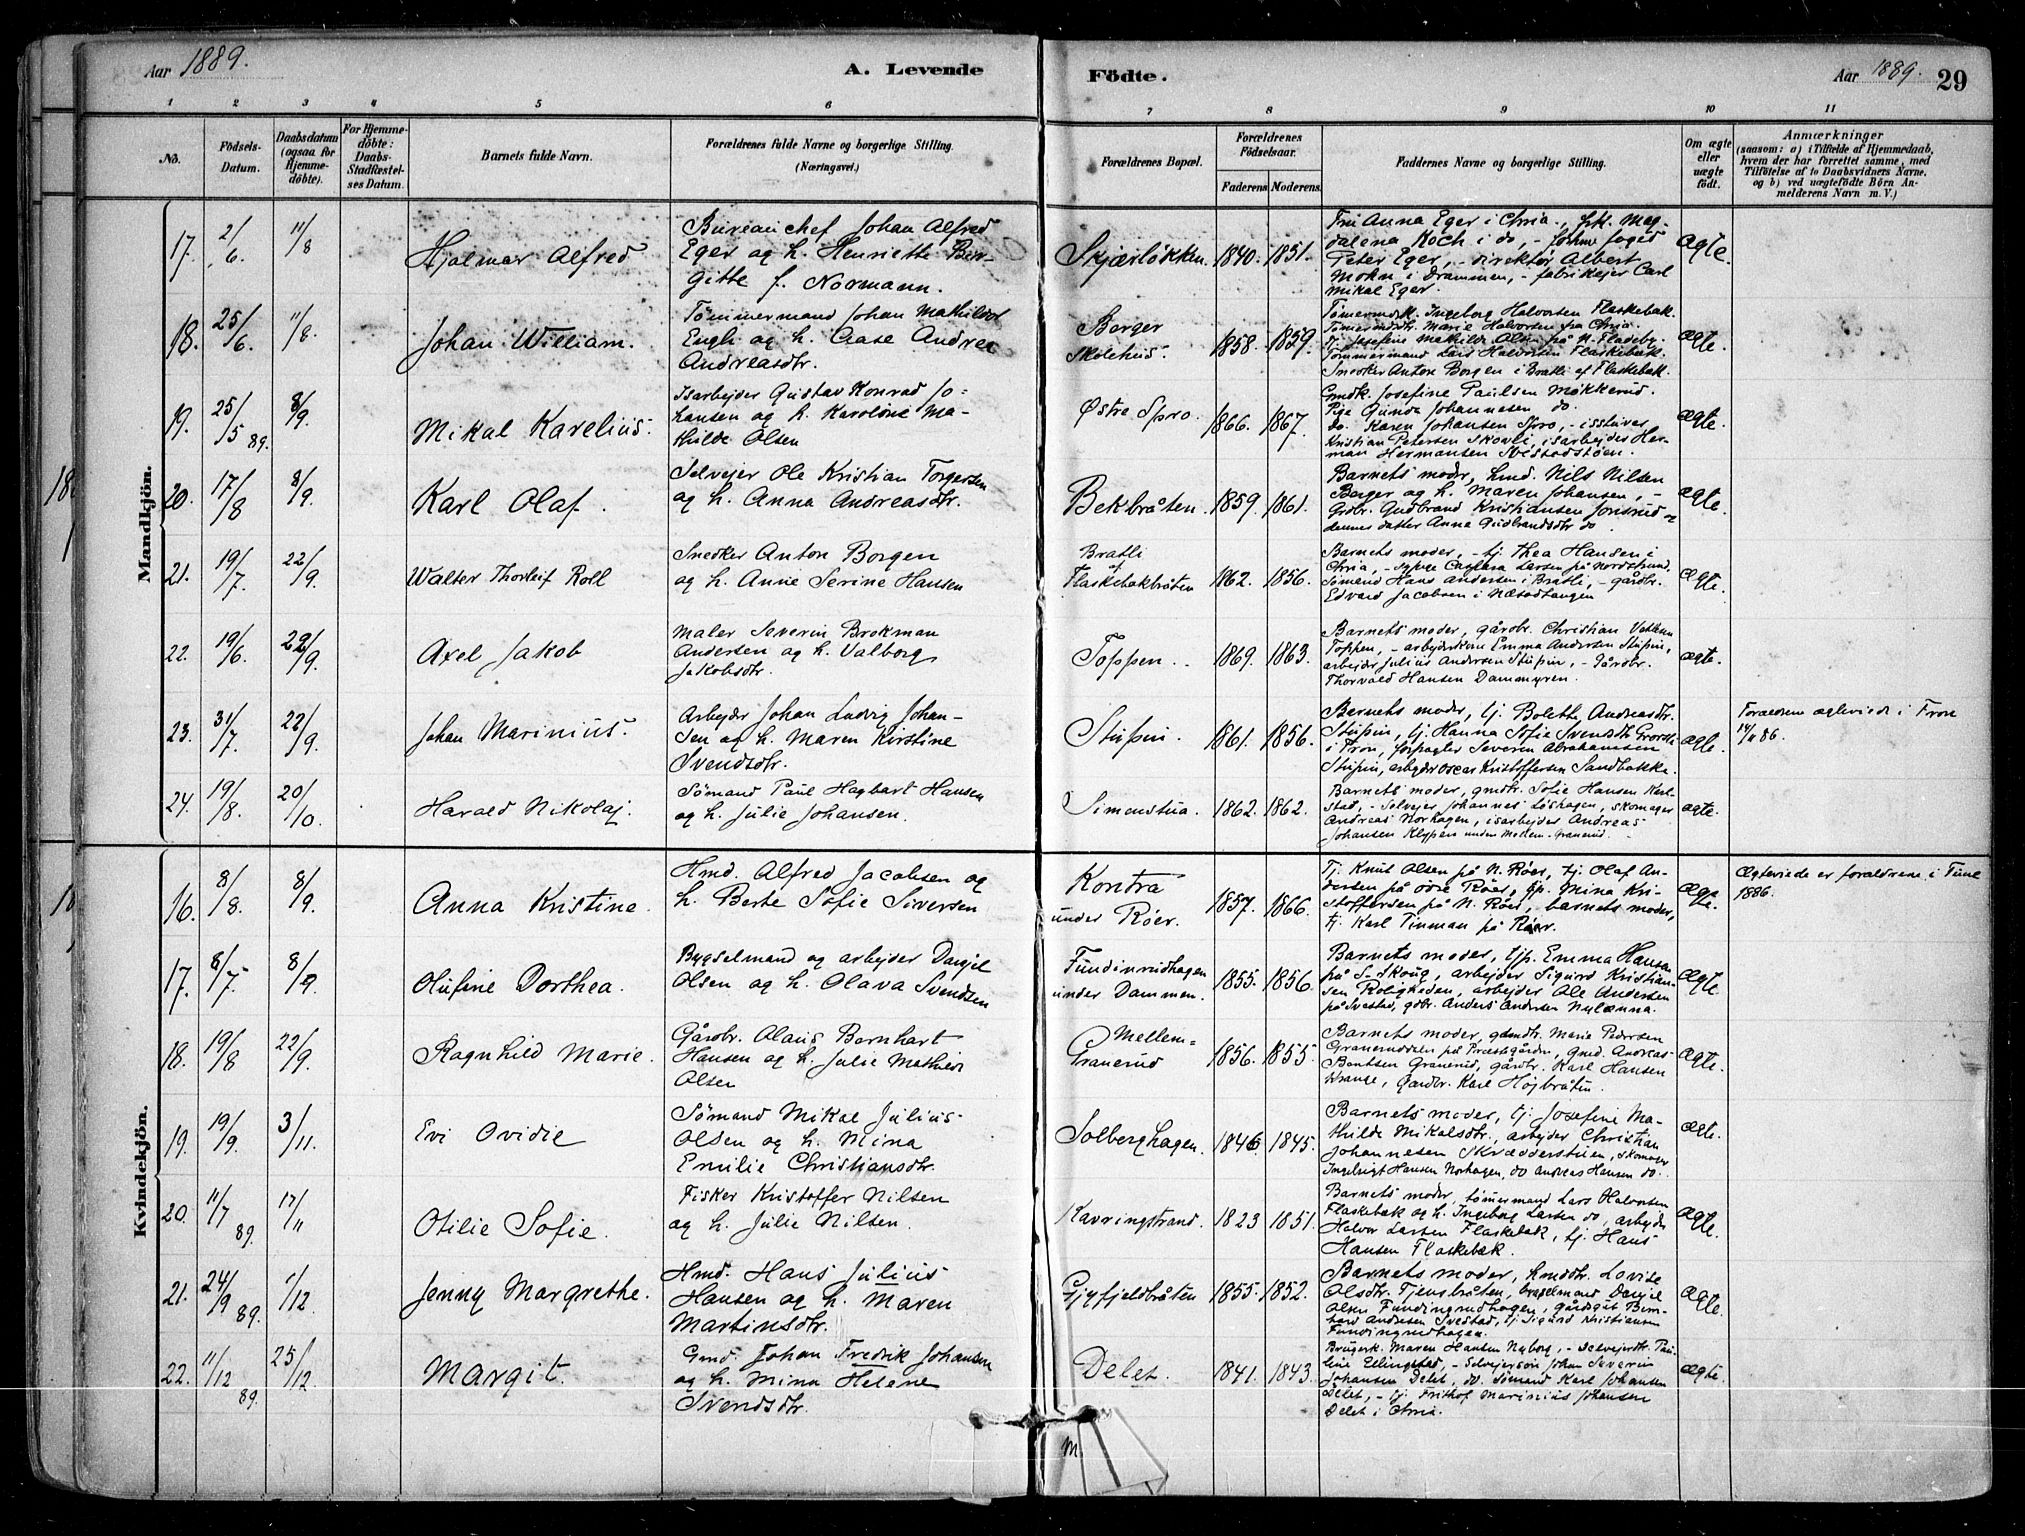 Aar 1889.
A. Levende
Födte.
Aar 1889.
29
1 2 3 4 5 6 7 8 9 10 11
No.
Födsels-
Datum.
Daabsdatum
(ogsaa for
Hjemme-
döbte).
For Hjemme-
döbte:
Daabs-
Stadfæstel-
ses Datum.
Barnets fulde Navn.
Forældrenes fulde Navne og borgerlige Stilling.
(Næringsvei.)
Forældrenes Bopæl.
Forældrenes
Födselsaar.
Faderens. Moderens.
Faddernes Navne og borgerlige Stilling.
Om ægte
eller
uægte
födt.
Anmærkninger
(saasom: a) i Tilfælde af Hjemmedaab,
hvem der har forrettet samme, med
Tilföielse af to Daabsvidners Navne.
og b) ved uægtefödte Börn An-
melderens Navn m. V.)
Mandkjön.
17. 2/6 11/8
Hjalmar Alfred
Bureauchef Johan Alfred
Eger og h. Henriette Bir-
gitte f. Normann.
Skjærløkken 1840. 1851.
Fru Anna Eger i Chria., frk. Mag-
dalena Koch i do,
Peter Eger, - direktör Albert
Mohn i Drammen, - fabrikejer Carl
Mikal Eger.
Ægte.
18. 25/6 11/8
Johan William.
Tömmermand Johan Mathildus
Engh og h. Aase Andrea
Andreasdtr.
Berger
Skolehus. 1858. 1859.
Tömermdsk. Ingeborg Halvorsen Flaskebæk.
Tömermdsdtr. Marie Halvorsen fra Chria.
tj. Josefine Mathilde Olsen på N. Fladeby.
Tömmermand Lars Halvorsen Flaskebæk.
Snedker Anton Borgen i Bratli af Flaskebæk.
ægte.
19. 25/5 89. 8/9
Mikal Karelius.
Isarbejder Gustav Konrad Jo-
hansen og h. Karoline Ma-
thilde Olsen
Østre Spro. 1866. 1867.
Gmdk. Josefine Paulsen Møkkerud.
Pige Gunda Johannesen do.
do. Karen Johansen Spro, - isskriver
Kristian Petersen Skovli, isarbejder Her-
man Hermansen Svestadstöen.
ægte.
20. 17/8 8/9
Karl Olaf.
Selvejer Ole Kristian Torgersen
og h. Anna Andreasdtr.
Bekbråten. 1859. 1861.
Barnets moder, hmd. Nils Nilsen
Berger og h. Maren Johansen, -
Grdbr. Gudbrand Kristiansen Jonsrud og
dennes datter Anna Gudbrandsdtr do.
ægte.
21. 19/7 22/9
Walter Thorleif Roll
Snedker Anton Borgen
og h. Anne Serine Hansen
Bratli
af
Flaskebækbråten 1862. 1856.
Barnets moder, - tj. Thea Hansen i
Chria, - sypige Caspara Larsen på Nordstrand,
Sömand Hans Andersen i Bratli, - gårdbr.
Edvard Jacobsen i Næsodtangen
Ægte.
22. 19/6. 22/9.
Axel Jakob
Maler Severin Brokman
Andersen og h. Valborg
Jakobsdtr.
Toppen. 1869. 1863.
Barnets moder, gårdbr. Christian
Toppen, - arbejderskone Emma Andersen Stupin,
arbejder Julius Andersen Stupin, - Gårdbr.
Thorvald Hansen Dammyren.
ægte.
23. 31/7. 22/9.
Johan Marinius.
Arbejder Johan Ludvig Johan-
sen og h. Maren Kirstine
Svendsdtr.
Stupin. 1861. 1856.
Barnets moder, tj. Bolette Andreasdtr.
Stupin, tj. Hanna Sofie Svendsdtr
i Fron, forpagter Severin Abrahamsen
Stupin, arbejder Oscar Kristoffersen Sandbakke.
ægte.
Forældrene ægteviede i Fron
86.
24. 19/8. 20/10.
Harald Nikolaj.
Sömand Paul Hagbart Hansen
og h. Julie Johansen.
Simenstua. 1862. 1862.
Barnets moder, gmdtr. Sofie Hansen Karl-
stad, - Selvejer Johannes Löshagen, skomager
Andreas Norhagen, isarbejder Andreas
Johansen Klyppen under Mellem-Granerud.
ægte.
Kvindekjön.
16. 8/8. 8/9.
Anna Kristine.
Hmd. Alfred Jacobsen og
h. Berte Sofie Siversen
Kontra
under Röer. 1857. 1866.
Tj. Knut Olsen på N. Röer, tj. Olaf An-
dersen på övre Röer, tjp. Mina Kri-
stoffersen på N. Röer, barnets moder,
tj. Karl Tinman på Röer.
Ægte.
Ægteviede er forældrene i Tune
1886.
17. 8/7. 8/9.
Olufine Dorthea.
Bygselmand og arbejder Daniel
Olsen og h. Olava Svendsen
Fundinrudhagen
under Dammen. 1855. 1856.
Barnets moder, tjp. Emma Hansen
på S. Skoug, arbejder Sigurd Kristian-
sen Roligheden, arbejder Ole Andersen
på Svestad, gdbr. Anders Andersen Nylænna.
Ægte.
18. 19/8 22/9.
Ragnhild Marie.
Gårdbr. Olaus Bernhart
Hansen og h. Julie Mathilde
Olsen
Mellem-
Granerud 1856. 1855.
Barnets moder, gdmdtr. Marie Pedersen
Graneruddalen på Præstegården, gmd. Andreas
Bentsen Granerud, gårdbr. Karl Hansen
Wrange, Gårdbr. Karl Höjbråten.
Ægte.
19. 19/9. 3/11.
Evi Ovidie
Sömand Mikal Julius
Olsen og h. Mina
Emilie Christiansdtr.
Solberghagen. 1846 1845.
Barnets moder, tj. Josefine Ma-
thilde Mikalsdtr., arbejder Christian
Johannesen Skrædderstuen, skomager
Ingebrigt Hansen Norhagen, do Andreas Hansen do.
Ægte.
20. 11/7 89. 17/11
Otilie Sofie.
Fisker Kristoffer Nilsen
og h. Julie Nilsen.
Kavringstrand. 1823 1851.
Barnets moder, tömermand Lars Halvorsen
Flaskebæk og h. Ingeborg Larsen do, arbejder
Halvor Larsen Flaskebæk, tj. Hans
Hansen Flaskebæk.
Ægte.
21. 24/9 89. 1/12
Jenny Margrethe.
Hmd. Hans Julius
Hansen og h. Maren
Martinsdtr.
Gjyfjeldbråten 1855. 1852.
Barnets moder, hmdtr. Lovise
Olsdtr. Tjensbråten, bygselmand Daniel
Olsen Fundingrudhagen, gårdsgut Bern-
hard Andresen Svestad, tj. Sigurd Kristiansen
Fundingrudhagen.
Ægte.
22. 11/12 89. 25/12.
Margit.
Gmd. Johan Fredrik Johansen
og h. Mina Helene
Svendsdtr.
Delet. 1841. 1843.
Brugerk. Maren Hansen Nyborg, - selvejerdtr. Pau-
line Ellingstad, - Selvejersön Johan Severin
Johansen Delet, do. Sömand Karl Johansen
Delet, - tj. Frithof Marinius Johansen
Delet i Chria.
Ægte.
M.